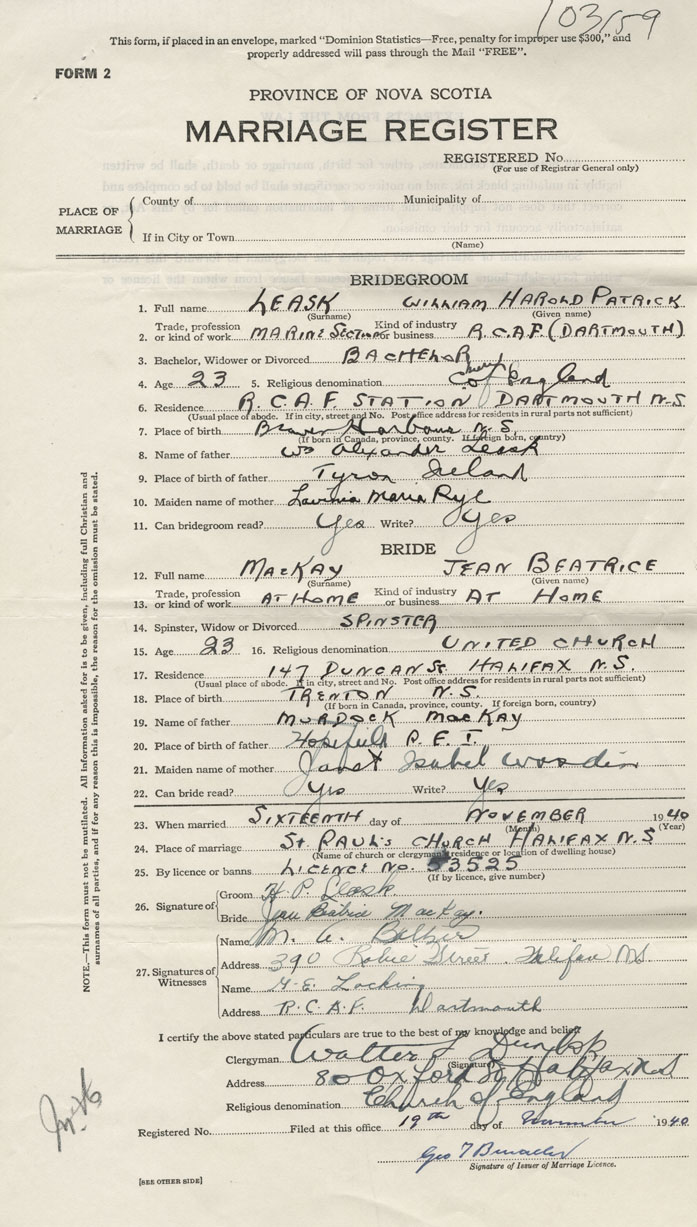 103159
This form, if placed in an envelope, marked "Dominion Statistics—Free, penalty for improper use $300," and
properly addressed will pass through the Mail "FREE".
FORM 2
PROVINCE OF NOVA SCOTIA
MARRIAGE REGISTER
REGISTERED No.
(For use of Registrar General only)
PLACE OF MARRIAGE
County of Municipality of
If in City or Town
(Name)
BRIDEGROOM
1. Full name LEASK WILLIAM HAROLD PATRICK
(Surname) (Given name)
2. Trade, profession or kind of work MARINE SECTION Kind of industry or business R.C.A.F. (DARTMOUTH)
3. Bachelor, Widower or Divorced BACHELOR
4. Age 23 5. Religious denomination Church of England
6. Residence R.C.A.F STATION DARTMOUTH N.S.
(Usual place of abode. If in city, street and No. Post office address for residents in rural parts not sufficient)
7. Place of birth Beaver Harbour N.S.
(If born in Canada, province, county. If foreign born, country)
8. Name of father Wm Alexander Leask
9. Place of birth of father Tyron Ireland
10. Maiden name of mother Lavinia Maria Rye
11. Can bridegroom read? Yes Write? Yes
BRIDE
12. Full name MACKAY JEAN BEATRICE
(Surname) (Given name)
13. Trade, profession or kind of work AT HOME Kind of industry or business AT HOME
14. Spinster, Widow or Divorced SPINSTER
15. Age 23 16. Religious denomination UNITED CHURCH
17. Residence 147 DUNCAN St. HALIFAX N.S.
(Usual place of abode. If in city, street and No. Post office address for residents in rural parts not sufficient)
18. Place of birth TRENTON N.S.
(If born in Canada, province, county. If foreign born, country)
19. Name of father MURDOCK MacKAY
20. Place of birth of father Hopefield P.E.I.
21. Maiden name of mother Janet Isabel Woodin
22. Can bride read? Yes Write? Yes
23. When married SIXTEENTH day of NOVEMBER 1940
(Month) (Year)
24. Place of marriage St. PAUL'S CHURCH HALIFAX N.S
(Name of church or clergyman's residence or location of dwelling house)
25. By licence or banns LICENCE NO. 53525
(If by licence, give number)
26. Signature of
Groom H. P. Leask
Bride Jean Beatrice MacKay.
27. Signatures of Witnesses
Name M. A.
Address 390 Robie Street. Halifax NS.
Name G. E. Locking
Address R.C.A.F. Dartmouth
I certify the above stated particulars are true to the best of my knowledge and belief.
Clergyman Walter F Dunlop
(Signature)
Address 80 Oxford St Halifax N.S
Religious denomination Church of England
Registered No. Filed at this office 19th day of November 1940
Geo T
Signature of Issuer of Marriage Licence.
[SEE OTHER SIDE]
NOTE.—This form must not be mutilated. All information asked for is to be given, including full Christian and
surnames of all parties, and if for any reason this is impossible, the reason for the omission must be stated.